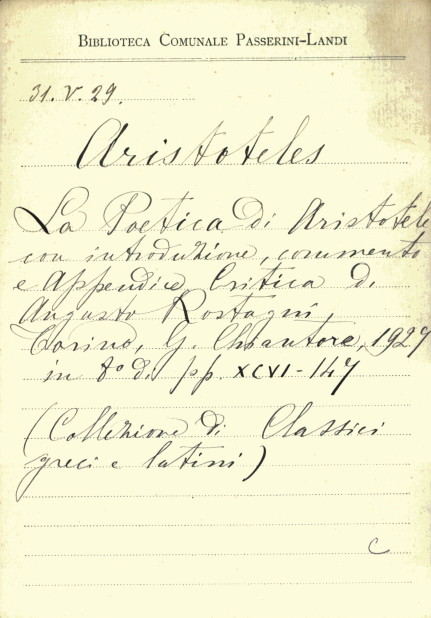 BIBLIOTECA COMUNALE PASSERINI-LANDI
31. V. 29.
Aristoteles
La Poetica di Aristotele,
con introduzione, commento
e Appendice Critica di
Augusto Rostagni,
Torino, G. Chiantore, 1927
in 8º di pp. XCVI-147
(Collezione di Classici
greci e latini)
C